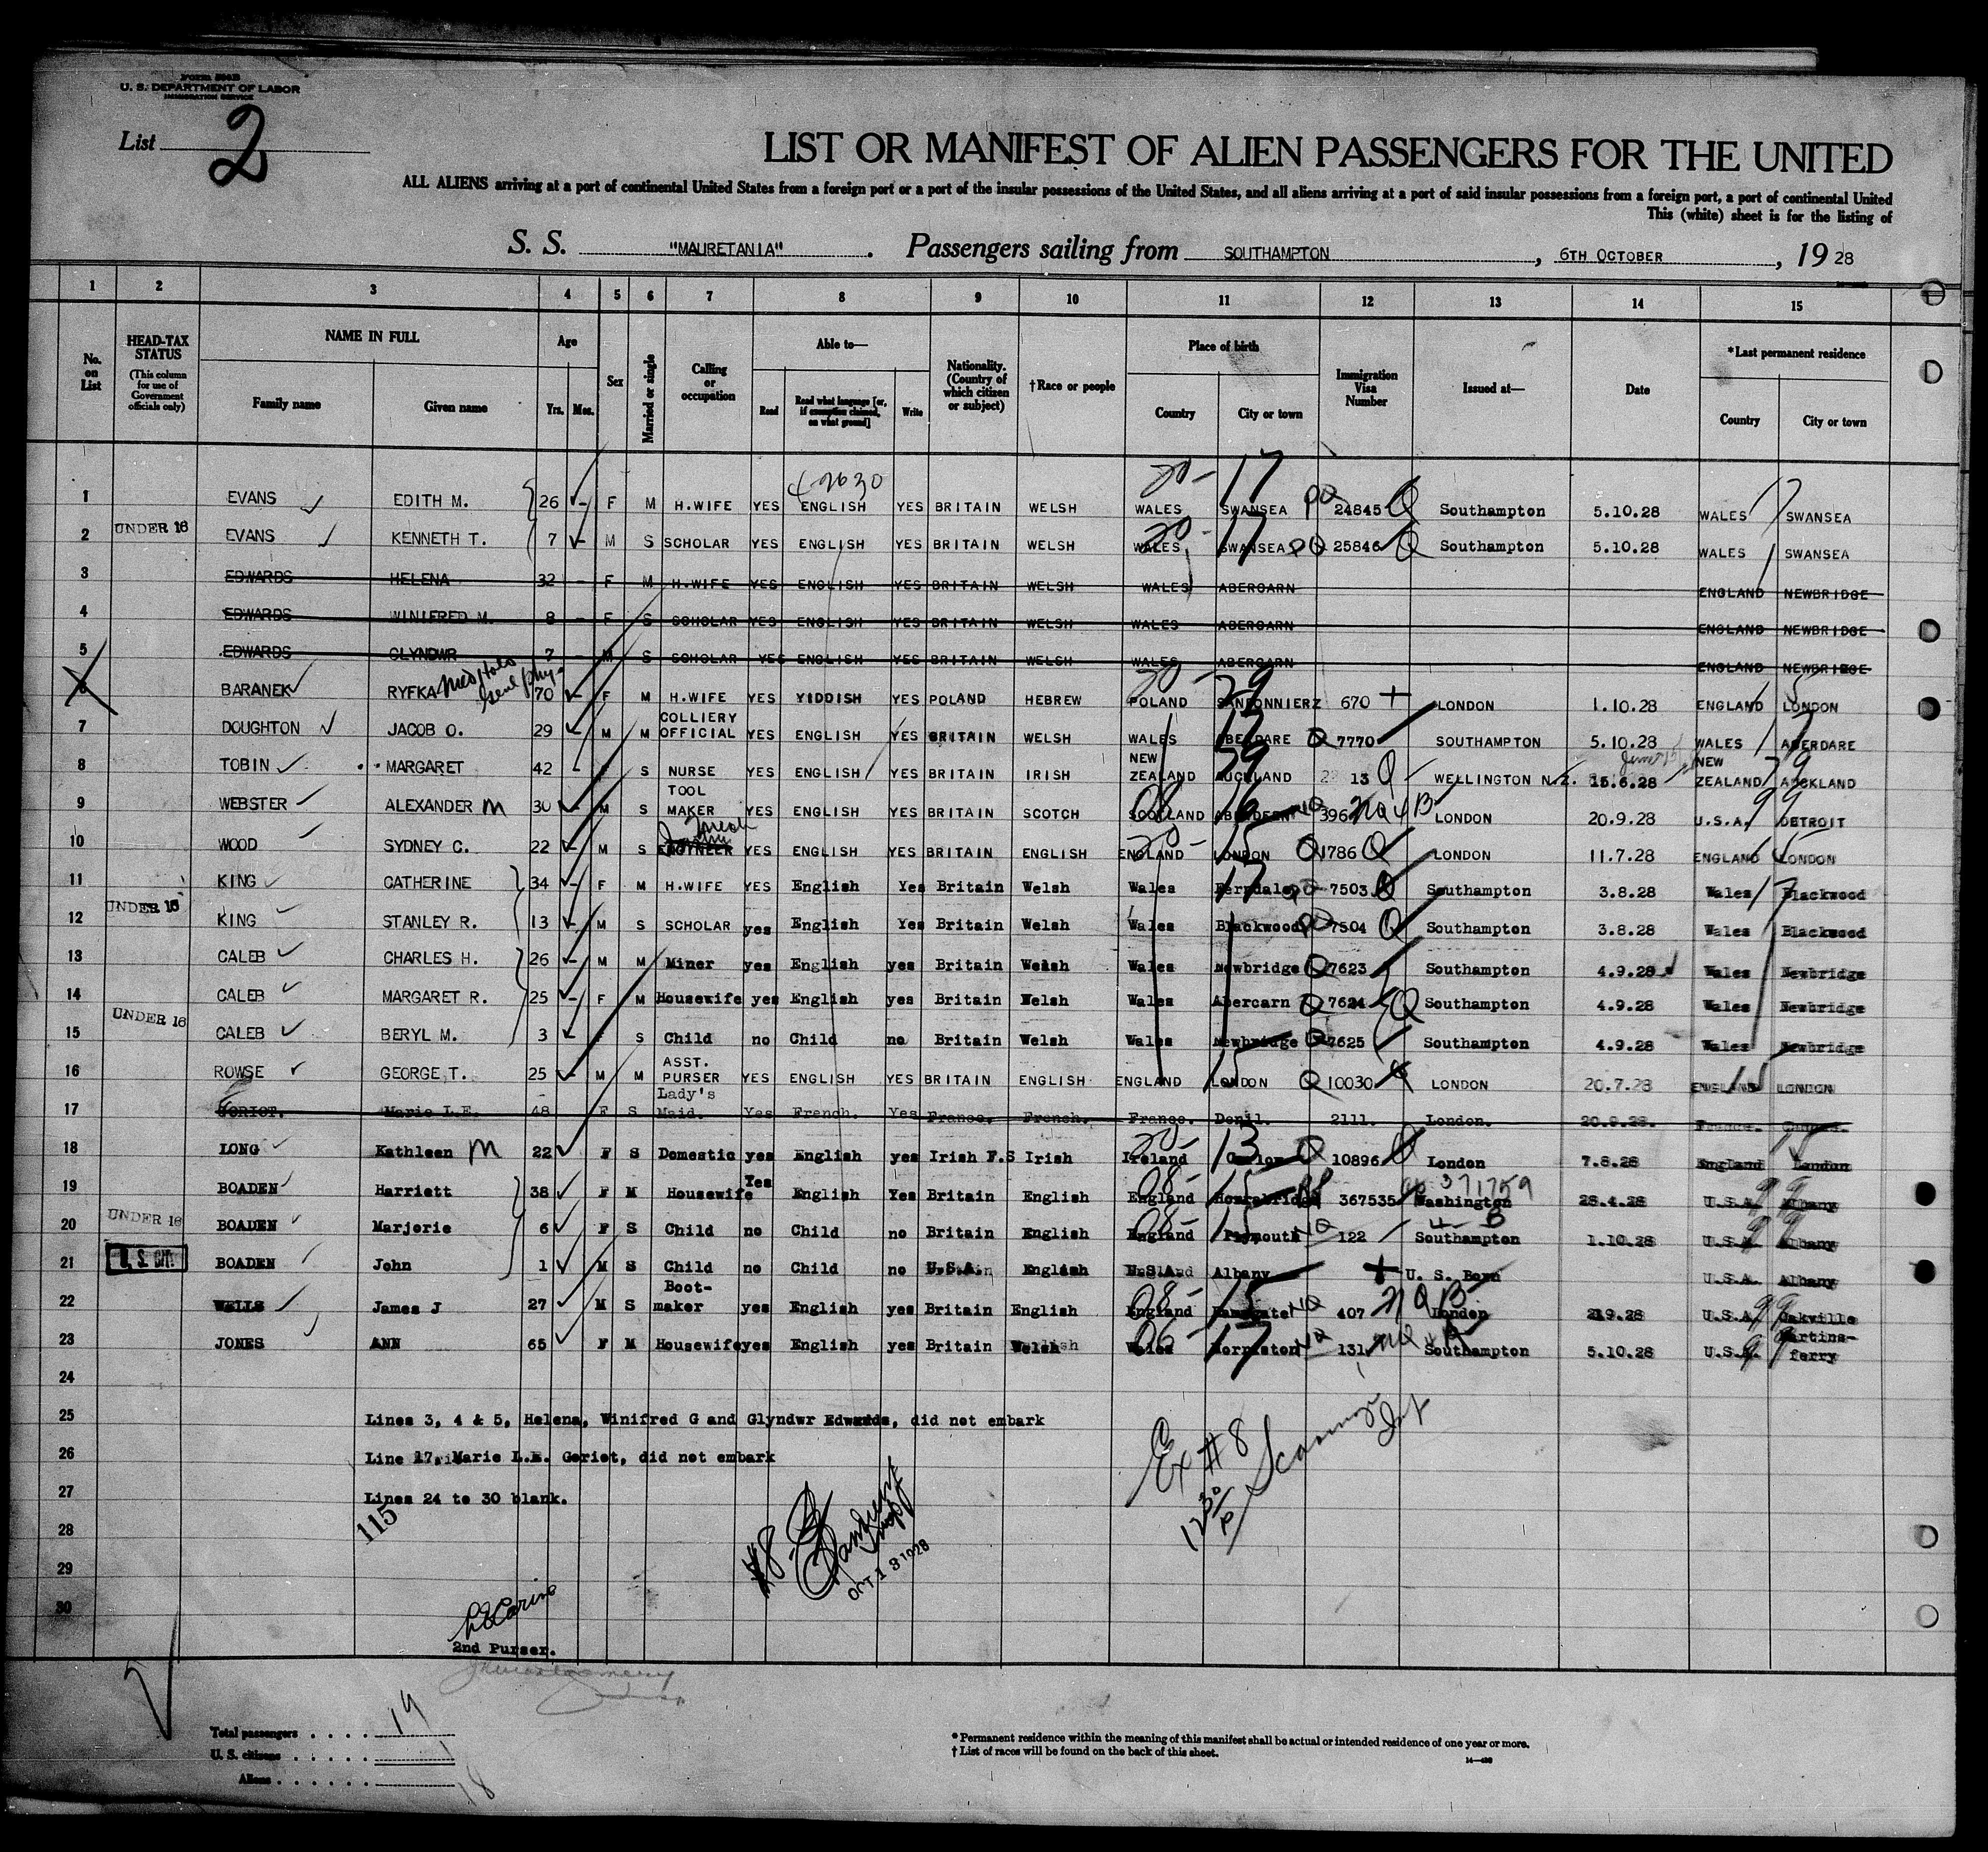 Form 500B
U. S. DEPARTMENT OF LABOR
IMMIGRATION SERVICE
List 2
LIST OR MANIFEST OF ALIEN PASSENGERS FOR THE UNITED
ALL ALIENS arriving at a port of continental United States from a foreign port or a port of the insular possessions of the United States, and all aliens arriving at a port of said insular possessions from a foreign port, a port of continental United
This (white) sheet is for the listing of
S. S. "MAURETANIA". Passengers sailing from SOUTHAMPTON, 6TH OCTOBER, 1928
1 2 3 4 5 6 7 8 9 10 11 12 13 14 15
No. on List
HEAD-TAX STATUS (This column for use of Government officials only)
NAME IN FULL
Family name Given name
Age
Yrs. Mos.
Sex
Married or single
Calling or occupation
Able to—
Read Read what language [or, if exemption claimed, on what ground] Write
Nationality. (Country of which citizen or subject)
†Race or people
Place of birth
Country City or town
Immigration Visa Number
Issued at—
Date
*Last permanent residence
Country City or town
4-2630
1 EVANS EDITH M. 26 - F M H.WIFE YES ENGLISH YES BRITAIN WELSH WALES SWANSEA 24845 Southampton 5.10.28 WALES SWANSEA
2 UNDER 16 EVANS KENNETH T. 7 - M S SCHOLAR YES ENGLISH YES BRITAIN WELSH WALES SWANSEA 25846 Southampton 5.10.28 WALES SWANSEA
3 EDWARDS HELENA 32 - F M H.WIFE YES ENGLISH YES BRITAIN WELSH WALES ABERCARN ENGLAND NEWBRIDGE
4 EDWARDS WINIFRED M. 8 - F S SCHOLAR YES ENGLISH YES BRITAIN WELSH WALES ABERCARN ENGLAND NEWBRIDGE
5 EDWARDS GLYNDWR 7 M S SCHOLAR YES ENGLISH YES BRITAIN WELSH WALES ABERCARN ENGLAND NEWBRIDGE
6 BARANEK RYFKA 70 - F M H.WIFE YES YIDDISH YES POLAND HEBREW POLAND 670 LONDON 1.10.28 ENGLAND LONDON
7 DOUGHTON JACOB O. 29 - M M COLLIERY OFFICIAL YES ENGLISH YES BRITAIN WELSH WALES ABERDARE 7770 SOUTHAMPTON 5.10.28 WALES ABERDARE
8 TOBIN MARGARET 42 - F S NURSE YES ENGLISH YES BRITAIN IRISH NEW ZEALAND AUCKLAND 13 WELLINGTON N.Z. 15.6.28 NEW ZEALAND AUCKLAND
9 WEBSTER ALEXANDER M 30 - M S TOOL MAKER YES ENGLISH YES BRITAIN SCOTCH SCOTLAND ABERDEEN 396 LONDON 20.9.28 U.S.A. DETROIT
10 WOOD SYDNEY C. 22 - M S ENGINEER YES ENGLISH YES BRITAIN ENGLISH ENGLAND LONDON 1786 LONDON 11.7.28 ENGLAND LONDON
11 KING CATHERINE 34 - F M H.WIFE YES English Yes Britain Welsh Wales Ferndale 7503 Southampton 3.8.28 Wales Blackwood
12 UNDER 16 KING STANLEY R. 13 - M S SCHOLAR yes English Yes Britain Welsh Wales Blackwood 7504 Southampton 3.8.28 Wales Blackwood
13 CALEB CHARLES H. 26 - M M Miner yes English yes Britain Welsh Wales Newbridge 7623 Southampton 4.9.28 Wales Newbridge
14 CALEB MARGARET R. 25 - F M Housewife yes English yes Britain Welsh Wales Abercarn 7624 Southampton 4.9.28 Wales Newbridge
15 UNDER 16 CALEB BERYL M. 3 F S Child no Child no Britain Welsh Wales Newbridge 7625 Southampton 4.9.28 Wales Newbridge
16 ROWSE GEORGE T. 25 - M M ASST. PURSER YES ENGLISH YES BRITAIN ENGLISH ENGLAND LONDON 10030 LONDON 20.7.28 ENGLAND LONDON
17 GORIOT. Marie L.E. 48 F S Lady's Maid. Yes French. Yes France. French. France. 2111. London. 20.9.28. France.
18 LONG Kathleen M 22 F S Domestic yes English yes Irish F.S Irish Ireland Carlow 10896 London 7.8.28 England London
19 BOADEN Harriett 38 F M Housewife Yes English Yes Britain English England 367535 Washington 28.4.28 U.S.A. Albany
20 UNDER 16 BOADEN Marjorie 6 F S Child no Child no Britain English England Plymouth 122 Southampton 1.10.28 U.S.A. Albany
21 U. S. CIT. BOADEN John 1 M S Child no Child no U.S.A. English U.S.A. Albany U. S. Born U.S.A. Albany
22 WELLS James J 27 M S Boot-maker yes English yes Britain English England Ramsgate 407 London 219.28 U.S.A. Oakville
23 JONES ANN 65 F M Housewife yes English yes Britain Welsh Wales Morriston 131 Southampton 5.10.28 U.S.A. Martins-ferry
24
25 Lines 3, 4 & 5, Helena, Winifred G and Glyndwr Edwards, did not embark
26 Line 17, Marie L.E. Goriot, did not embark
27 Lines 24 to 30 blank.
115
28
29
30
Ex #8
OCT 1 8 1928
2nd Purser.
Total passengers . . . . 19
U. S. citizens . . . . . 1
Aliens . . . . . . 18
* Permanent residence within the meaning of this manifest shall be actual or intended residence of one year or more.
† List of races will be found on the back of this sheet.